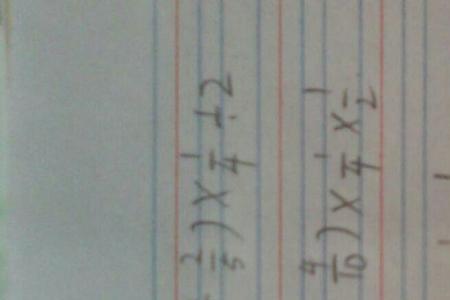 2/5) × 1/4 ÷ 2
4/10) × 1/4 × 1/2